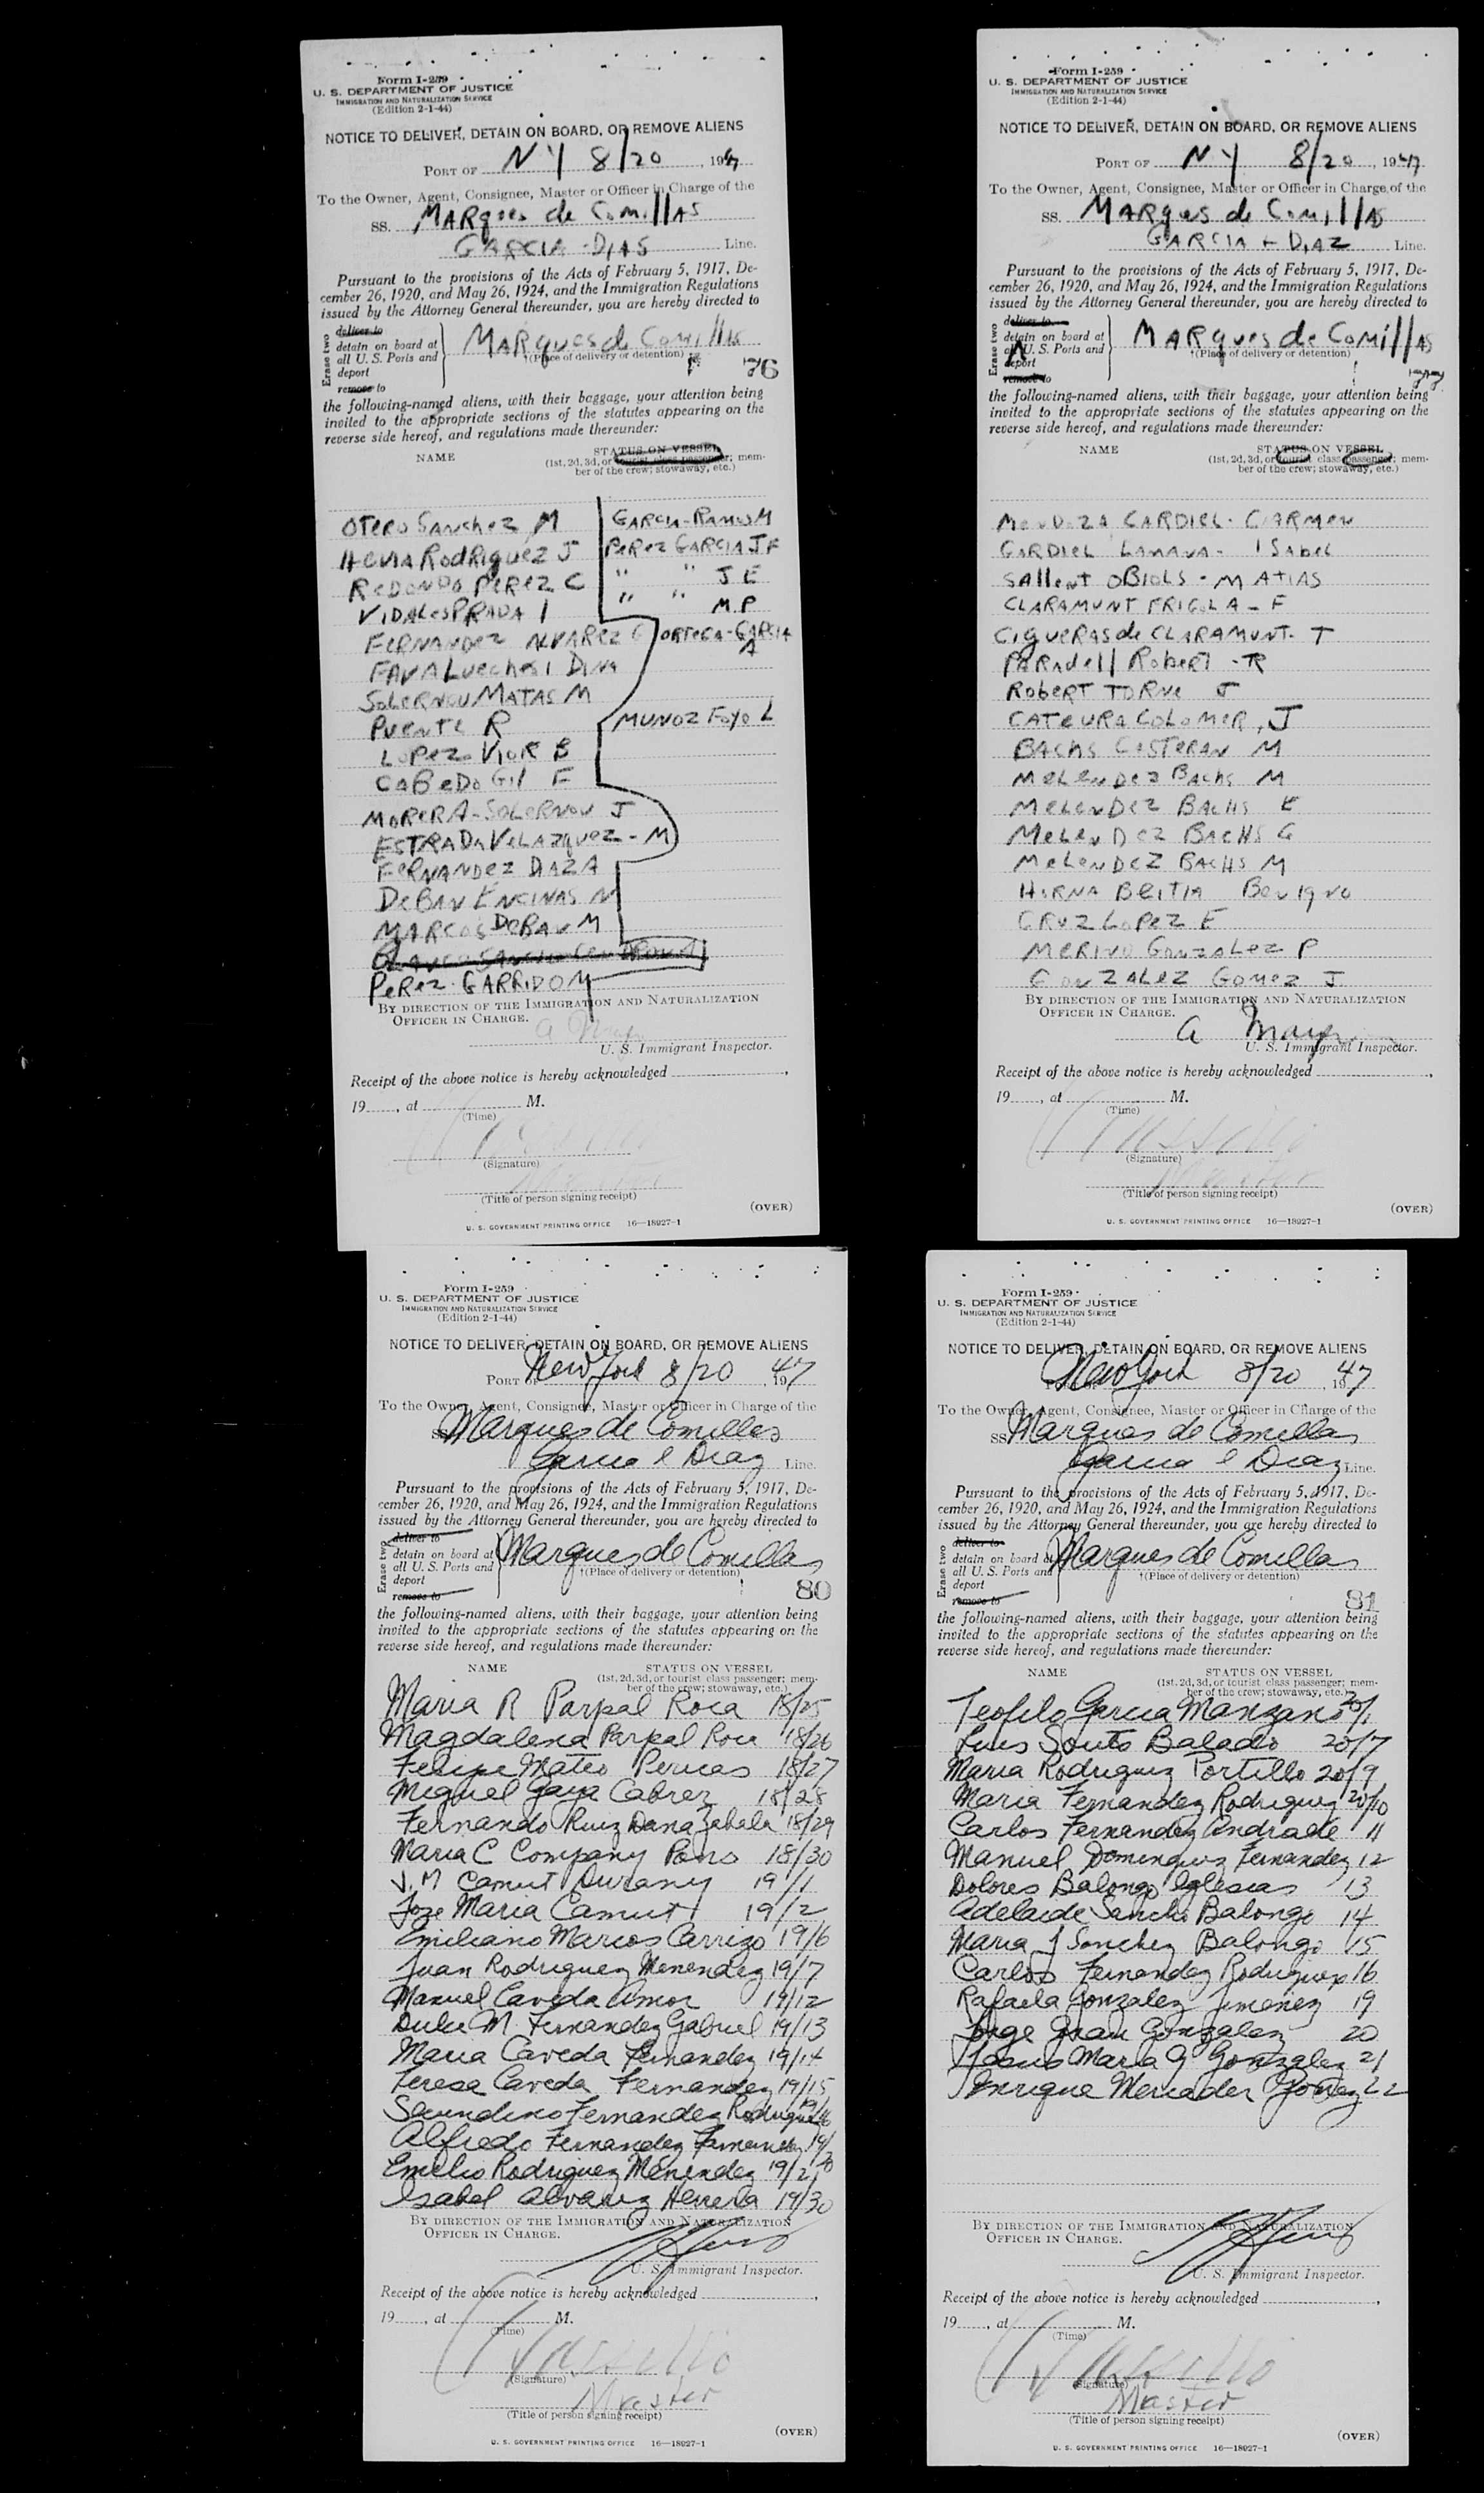 Form I-259
U. S. DEPARTMENT OF JUSTICE
IMMIGRATION AND NATURALIZATION SERVICE
(Edition 2-1-44)
NOTICE TO DELIVER, DETAIN ON BOARD, OR REMOVE ALIENS
PORT OF NY 8/20, 1947
To the Owner, Agent, Consignee, Master or Officer in Charge of the
SS. MARques de ComillAS
GARCIA - DIAS Line.
Pursuant to the provisions of the Acts of February 5, 1917, De-
cember 26, 1920, and May 26, 1924, and the Immigration Regulations
issued by the Attorney General thereunder, you are hereby directed to
Erase two
deliver to
detain on board at
all U. S. Ports and
deport
remove to
MARques de ComillAS
†(Place of delivery or detention)
76
the following-named aliens, with their baggage, your attention being
invited to the appropriate sections of the statutes appearing on the
reverse side hereof, and regulations made thereunder:
NAME STATUS ON VESSEL
(1st, 2d, 3d, or tourist class passenger; mem-
ber of the crew; stowaway, etc.)
OTERO SANchez M GARCIA-RAMOS M
HEVIA RODRIGUEZ J PEREZ GARCIA J F
REDONDO PEREZ C " " J E
VIDALES PRADA I " " M.P
FERNANDEZ ALVAREZ G ORTEGA-GARCIA A
FAVA Lucchesi DINA
SOLERNOU MATAS M
PUENTE R MUNOZ Foyo L
LOPEZ VIOR B
CABEDO Gil F
MORERA-SOLERNOU J
ESTRADA VELAZQUEZ - M
FERNANDEZ DIAZ A
DEBAN ENCINAS M
MARCOS DEBAN M
PEREZ GARRIDO M
BY DIRECTION OF THE IMMIGRATION AND NATURALIZATION
OFFICER IN CHARGE.
U. S. Immigrant Inspector.
Receipt of the above notice is hereby acknowledged
19, at M.
(Time)
(Signature)
Master
(Title of person signing receipt)
(OVER)
U. S. GOVERNMENT PRINTING OFFICE 16—18927-1
Form I-259
U. S. DEPARTMENT OF JUSTICE
IMMIGRATION AND NATURALIZATION SERVICE
(Edition 2-1-44)
NOTICE TO DELIVER, DETAIN ON BOARD, OR REMOVE ALIENS
PORT OF NY 8/20, 1947
To the Owner, Agent, Consignee, Master or Officer in Charge of the
SS. MARques de ComillAS
GARCIA + DIAZ Line.
Pursuant to the provisions of the Acts of February 5, 1917, De-
cember 26, 1920, and May 26, 1924, and the Immigration Regulations
issued by the Attorney General thereunder, you are hereby directed to
Erase two
deliver to
detain on board at
all U. S. Ports and
deport
remove to
MARques de ComillAS
†(Place of delivery or detention)
77
the following-named aliens, with their baggage, your attention being
invited to the appropriate sections of the statutes appearing on the
reverse side hereof, and regulations made thereunder:
NAME STATUS ON VESSEL
(1st, 2d, 3d, or tourist class passenger; mem-
ber of the crew; stowaway, etc.)
MENDOZA CARDIEL - CARMEN
CARDIEL LAMANA - ISAbel
SAllent OBIOLS - MATIAS
CLARAMUNT FRIGOLA - F
CIGUERAS de CLARAMUNT - T
PARAdell RobeRT - R
ROBERT TORNE J
CATEURA COLOMER, J
BACHS CASTERAN M
MELENDEZ BACHS M
MELENDEZ BACHS E
MELENDEZ BACHS G
MELENDEZ BACHS M
HORNA BEITIA Benigno
CRUZ LOPEZ E
MERINO GONZALEZ P
GONZALEZ GOMEZ J
BY DIRECTION OF THE IMMIGRATION AND NATURALIZATION
OFFICER IN CHARGE.
U. S. Immigrant Inspector.
Receipt of the above notice is hereby acknowledged
19, at M.
(Time)
(Signature)
Master
(Title of person signing receipt)
(OVER)
U. S. GOVERNMENT PRINTING OFFICE 16—18927-1
Form I-259
U. S. DEPARTMENT OF JUSTICE
IMMIGRATION AND NATURALIZATION SERVICE
(Edition 2-1-44)
NOTICE TO DELIVER, DETAIN ON BOARD, OR REMOVE ALIENS
PORT OF New York 8/20, 1947
To the Owner, Agent, Consignee, Master or Officer in Charge of the
SS Marques de Comillas
Garcia e Diaz Line.
Pursuant to the provisions of the Acts of February 5, 1917, De-
cember 26, 1920, and May 26, 1924, and the Immigration Regulations
issued by the Attorney General thereunder, you are hereby directed to
Erase two
deliver to
detain on board at
all U. S. Ports and
deport
remove to
Marques de Comillas
†(Place of delivery or detention)
80
the following-named aliens, with their baggage, your attention being
invited to the appropriate sections of the statutes appearing on the
reverse side hereof, and regulations made thereunder:
NAME STATUS ON VESSEL
(1st, 2d, 3d, or tourist class passenger; mem-
ber of the crew; stowaway, etc.)
Maria R Parpal Roca 18/25
Magdalena Parpal Roca 18/26
Felipe Mateo Pericas 18/27
Miguel Gaya Cabrer 18/28
Fernando Ruiz Dana Zabala 18/29
Maria C Company Pons 18/30
J. M Camut Durany 19/1
Jose Maria Camut 19/2
Emiliano Marcos Carrizo 19/6
Juan Rodriguez Menendez 19/7
Manuel Caveda Amor 19/12
Dulce M Fernandez Gabriel 19/13
Maria Caveda Fernandez 19/14
Teresa Caveda Fernandez 19/15
Secundino Fernandez Rodriguez 19/16
Alfredo Fernandez Fernandez 19/20
Emilio Rodriguez Menendez 19/21
Isabel Alvarez Herrera 19/30
BY DIRECTION OF THE IMMIGRATION AND NATURALIZATION
OFFICER IN CHARGE.
U. S. Immigrant Inspector.
Receipt of the above notice is hereby acknowledged
19, at M.
(Time)
(Signature)
Master
(Title of person signing receipt)
(OVER)
U. S. GOVERNMENT PRINTING OFFICE 16—18927-1
Form I-259
U. S. DEPARTMENT OF JUSTICE
IMMIGRATION AND NATURALIZATION SERVICE
(Edition 2-1-44)
NOTICE TO DELIVER, DETAIN ON BOARD, OR REMOVE ALIENS
New York 8/20, 1947
To the Owner, Agent, Consignee, Master or Officer in Charge of the
SS Marques de Comillas
Garcia e Diaz Line.
Pursuant to the provisions of the Acts of February 5, 1917, De-
cember 26, 1920, and May 26, 1924, and the Immigration Regulations
issued by the Attorney General thereunder, you are hereby directed to
Erase two
deliver to
detain on board at
all U. S. Ports and
deport
remove to
Marques de Comillas
†(Place of delivery or detention)
81
the following-named aliens, with their baggage, your attention being
invited to the appropriate sections of the statutes appearing on the
reverse side hereof, and regulations made thereunder:
NAME STATUS ON VESSEL
(1st, 2d, 3d, or tourist class passenger; mem-
ber of the crew; stowaway, etc.)
Teofilo Garcia Manzano 20/1
Luis Souto Balado 20/7
Maria Rodriguez Portillo 20/9
Maria Fernandez Rodriguez 20/10
Carlos Fernandez Andrade 11
Manuel Dominguez Fernandez 12
Dolores Balongo Iglesias 13
Adelaide Sancho Balongo 14
Maria J Sanchez Balongo 15
Carlos Fernandez Rodriguez 16
Rafaela Gonzalez Jimenez 19
Jorge Grau Gonzalez 20
Jesus Maria G Gonzalez 21
Enrique Mercader Gomez 22
BY DIRECTION OF THE IMMIGRATION AND NATURALIZATION
OFFICER IN CHARGE.
U. S. Immigrant Inspector.
Receipt of the above notice is hereby acknowledged
19, at M.
(Time)
(Signature)
Master
(Title of person signing receipt)
(OVER)
U. S. GOVERNMENT PRINTING OFFICE 16—18927-1